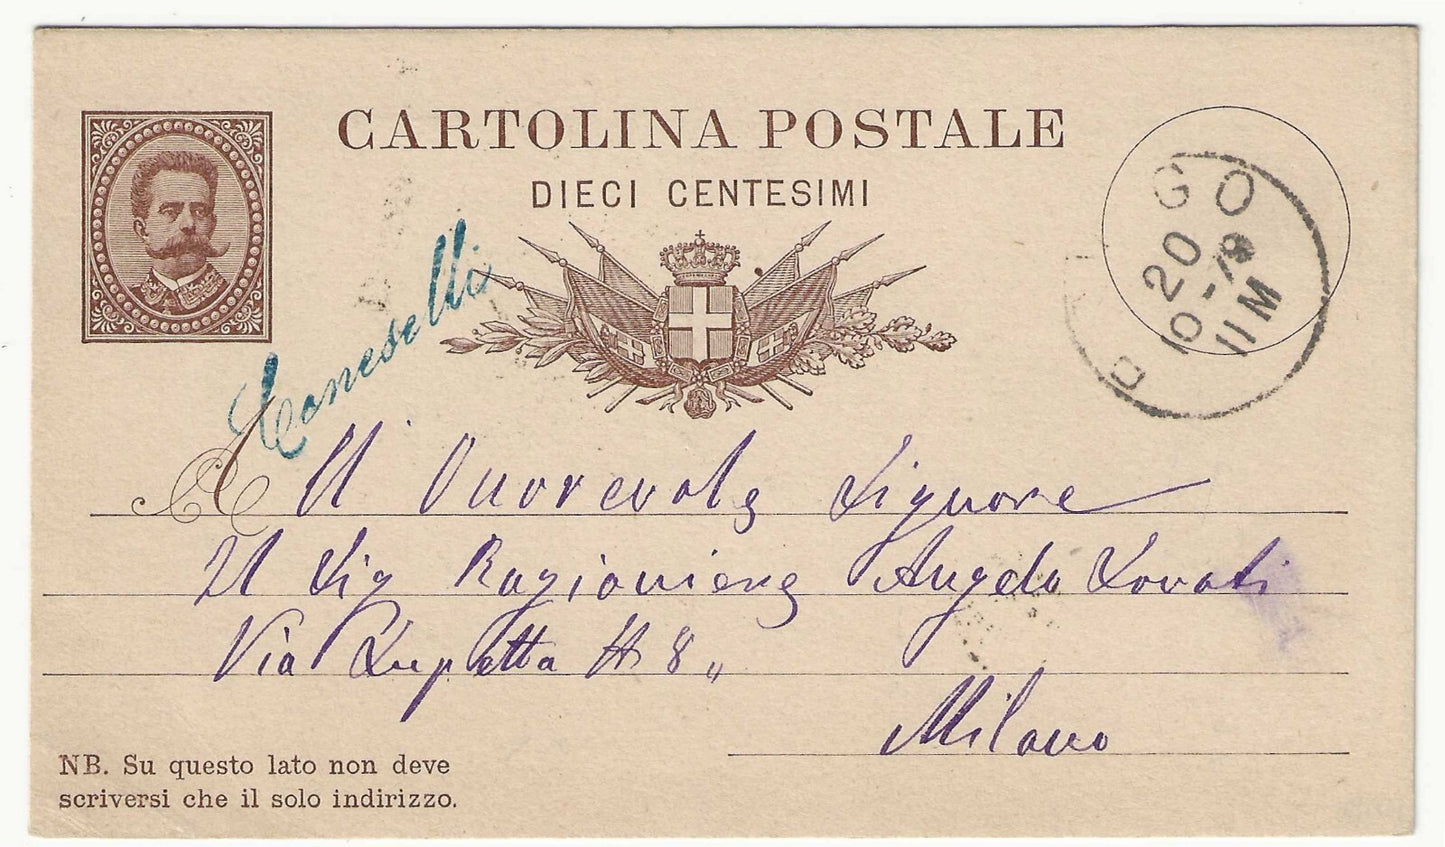 CARTOLINA POSTALE
DIECI CENTESIMI
GO
20
10-79
11 M
All Onorevole Signore
Il Sig Ragioniere Angelo Lovati
Via Lupetta N 8 "
Milano
NB. Su questo lato non deve
scriversi che il solo indirizzo.